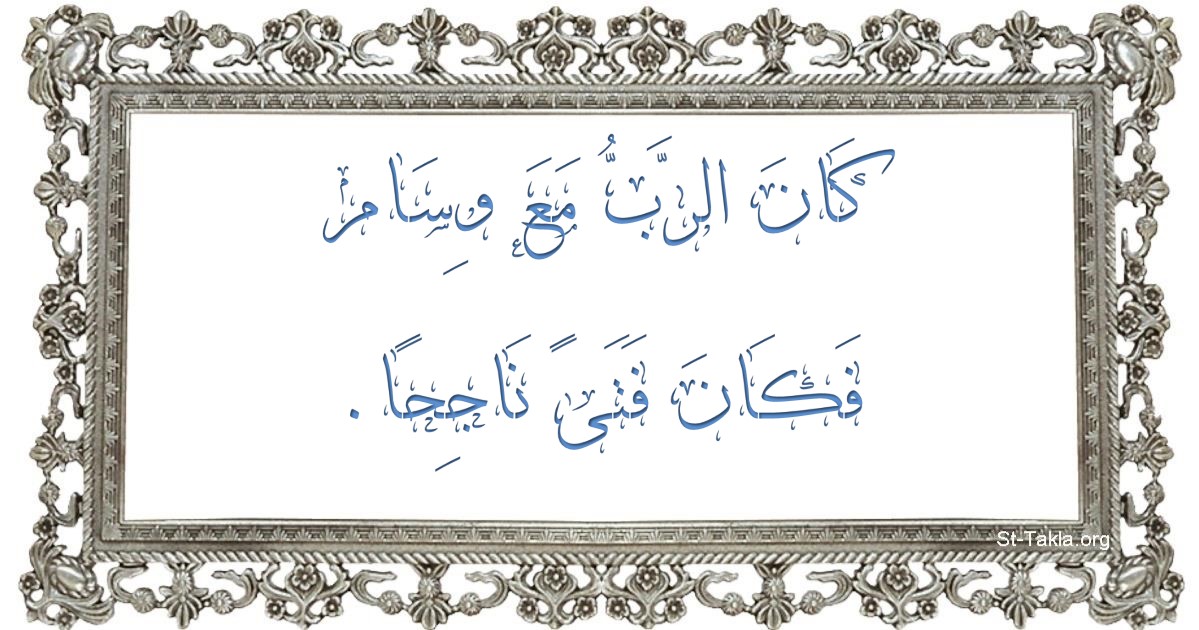 كَانَ الرَّبُّ مَعَ وِسَام
فَكَانَ فَتَىً نَاجِحًا.
St-Takla.org